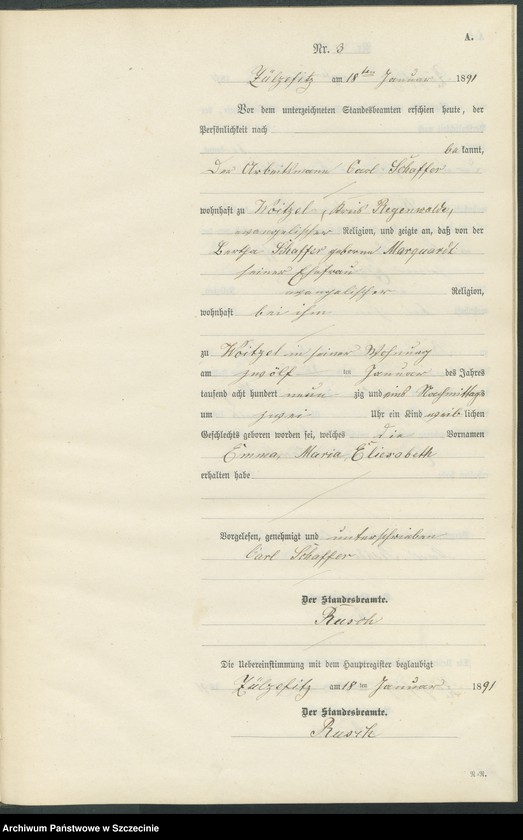 A.
Nr. 3
Zülzefitz am 18ten Januar 1891
Vor dem unterzeichneten Standesbeamten erschien heute, der
Persönlichkeit nach
be kannt,
Der Arbeitsmann Carl Schaffer
wohnhaft zu Woitzel, Kreis Regenwalde,
evangelischer Religion, und zeigte an, daß von der
Bertha Schaffer geborene Marquardt
seiner Ehefrau
evangelischer Religion,
wohnhaft bei ihm
zu Woitzel in seiner Wohnung
am zwölf ten Januar des Jahres
tausend acht hundert neun zig und eins Nachmittags
um zwei Uhr ein Kind weib lichen
Geschlechts geboren worden sei, welches die Vornamen
Emma, Maria, Eliesabeth
erhalten habe
Vorgelesen, genehmigt und unterschrieben
Carl Schaffer
Der Standesbeamte.
Rusch
Die Uebereinstimmung mit dem Hauptregister beglaubigt
Zülzefitz am 18 ten Januar 1891
Der Standesbeamte.
Rusch
R.-R.
Archiwum Państwowe w Szczecinie